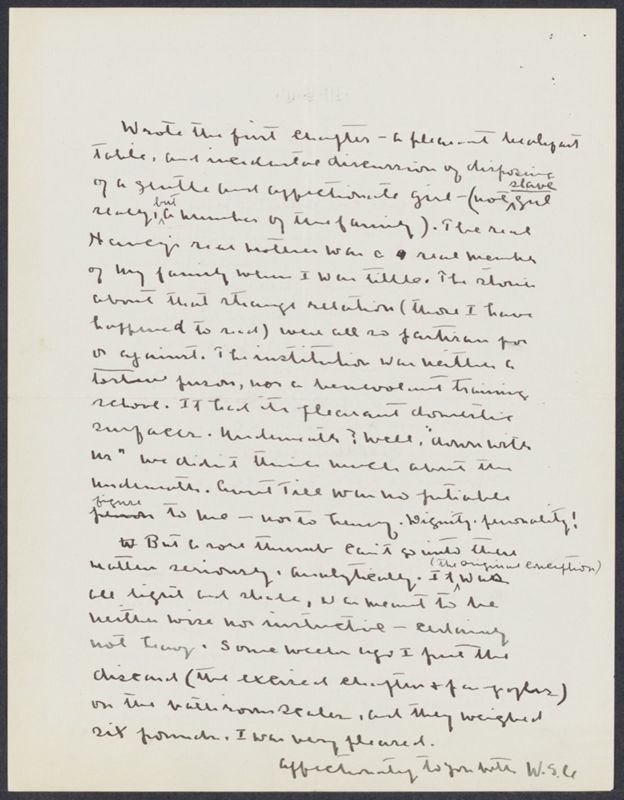 Wrote the first chapter – a pleasant breakfast
table, and incidental discussion of disposing
of a gentle and affectionate girl – (not slave girl
really, but a member of the family). The real
Nancy's real mother was a real member
of my family when I was little. The stories
about that strange relation (those I have
happened to read) were all so partisan for
or against. The institution was neither a
torture prison, nor a benevolent training
school. It had its pleasant domestic
surfaces. Underneath? Well, "down with
us" we didn't think much about the
underneath. Aunt Till was no pitiable
person figure to me – nor to Nancy. Dignity, personality!
But a sore thumb can't go into these
matters seriously, analytically. It (the original conception) was
all light and shade, was meant to be
neither wise nor instructive – certainly
not heavy. Some weeks ago I put the
discard (the excised chapters &
on the bathroom scales, and they weighed
six pounds. I was very pleased.
affectionately to you both W.S.C.